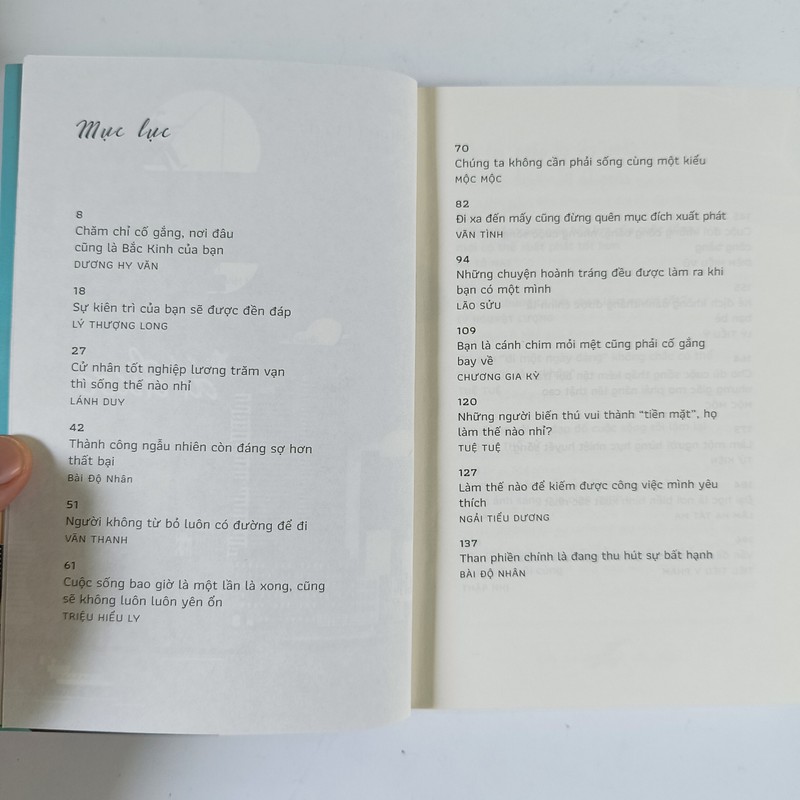 Mục lục
8
Chăm chỉ cố gắng, nơi đâu
cũng là Bắc Kinh của bạn
DƯƠNG HY VĂN
18
Sự kiên trì của bạn sẽ được đền đáp
LÝ THƯỢNG LONG
27
Cử nhân tốt nghiệp lương trăm vạn
thì sống thế nào nhỉ
LÁNH DUY
42
Thành công ngẫu nhiên còn đáng sợ hơn
thất bại
Bài Độ Nhân
51
Người không từ bỏ luôn có đường để đi
VĂN THANH
61
Cuộc sống bao giờ là một lần là xong, cũng
sẽ không luôn luôn yên ổn
TRIỆU HIỂU LY
70
Chúng ta không cần phải sống cùng một kiểu
MỘC MỘC
82
Đi xa đến mấy cũng đừng quên mục đích xuất phát
VĂN TÌNH
94
Những chuyện hoành tráng đều được làm ra khi
bạn có một mình
LÃO SỬU
109
Bạn là cánh chim mỏi mệt cũng phải cố gắng
bay về
CHƯƠNG GIA KỲ
120
Những người biến thú vui thành “tiền mặt”, họ
làm thế nào nhỉ?
TUỆ TUỆ
127
Làm thế nào để kiếm được công việc mình yêu
thích
NGẢI TIỂU DƯƠNG
137
Than phiền chính là đang thu hút sự bất hạnh
BÀI ĐỘ NHÂN